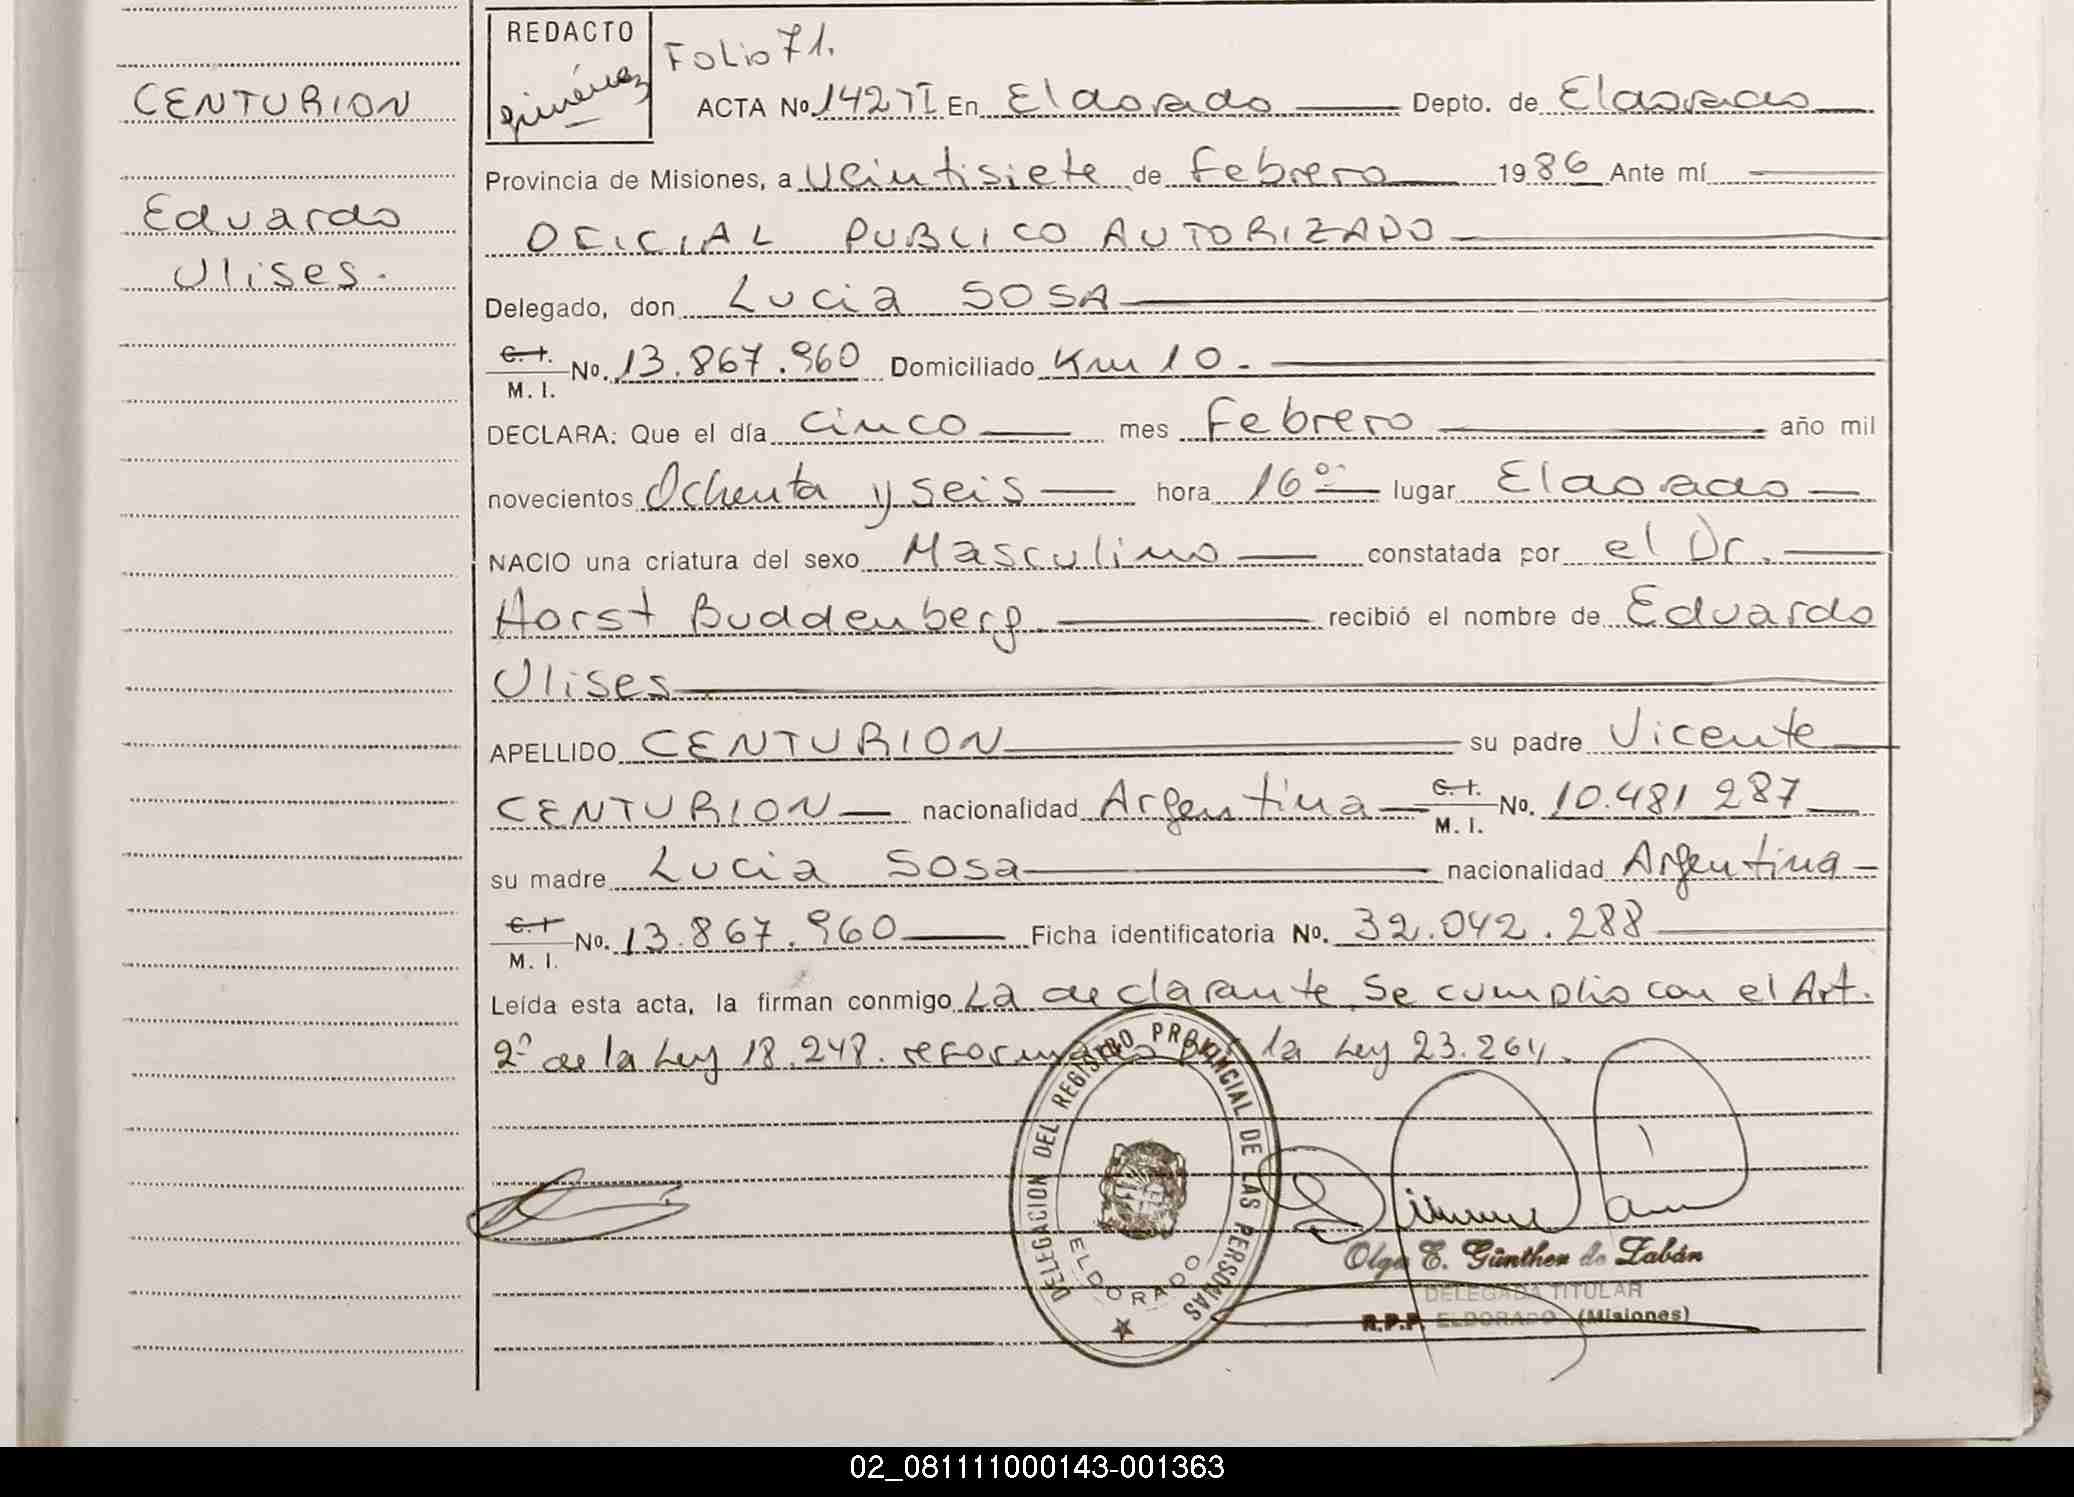 REDACTO
Giménez
Folio 71.
CENTURION
Eduardo
Ulises.
ACTA Nº 142 TI En Eldorado Depto. de Eldorado
Provincia de Misiones, a Veintisiete de Febrero 1986 Ante mí
OFICIAL PUBLICO AUTORIZADO
Delegado, don Lucia SOSA
C. I. M. I. No. 13.867.960 Domiciliado Km 10.
DECLARA: Que el día cinco mes Febrero año mil
novecientos Ochenta y seis hora 16º lugar Eldorado
NACIO una criatura del sexo Masculino constatada por el Dr.
Horst Buddenberg recibió el nombre de Eduardo
Ulises
APELLIDO CENTURION su padre Vicente
CENTURION nacionalidad Argentina C. I. M. I. No. 10.481 287
su madre Lucia Sosa nacionalidad Argentina
C. I M. I. No. 13.867.960 Ficha identificatoria No. 32.042.288
Leída esta acta, la firman conmigo La declarante Se cumplio con el Art.
2º de la Ley 18.248. reformado por la Ley 23.264.
DELEGACION DEL REGISTRO PROVINCIAL DE LAS PERSONAS
ELDORADO
Olga E. Günther de Zabán
DELEGADA TITULAR
R.P.P. ELDORADO (Misiones)
02_081111000143-001363